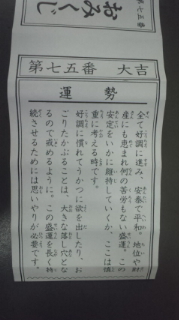 第七五番
おみくじ
第七五番 大吉
運勢
全て好調に進み、安泰で平和、地位や財
産にも恵まれ何の苦労もない盛運。この
安定をいかに維持していくか、ここは慎
重に考える時です。
好調に慣れてうかつに欲を出したり、お
ごりたかぶることは、大きな落し穴とな
るので戒めるように。この盛運を長く持
続させるためには思いやりが必要です。